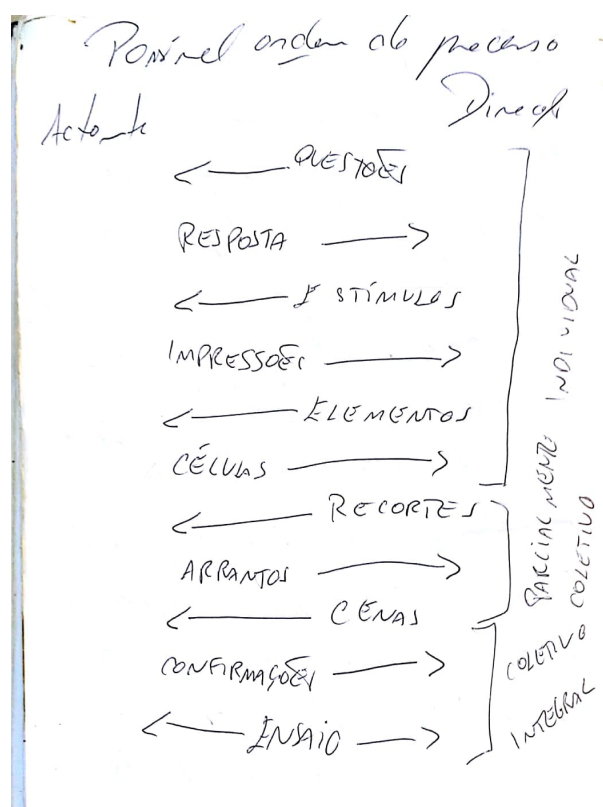 Possível ordem do processo
Actante Direção
← QUESTÕES
RESPOSTA →
← ESTÍMULOS
IMPRESSÕES →
← ELEMENTOS
CÉLULAS →
← RECORTES
ARRANJOS →
← CENAS
CONFIRMAÇÕES →
← ENSAIO →
INDIVIDUAL
PARCIALMENTE
COLETIVO
COLETIVO
INTEGRAL